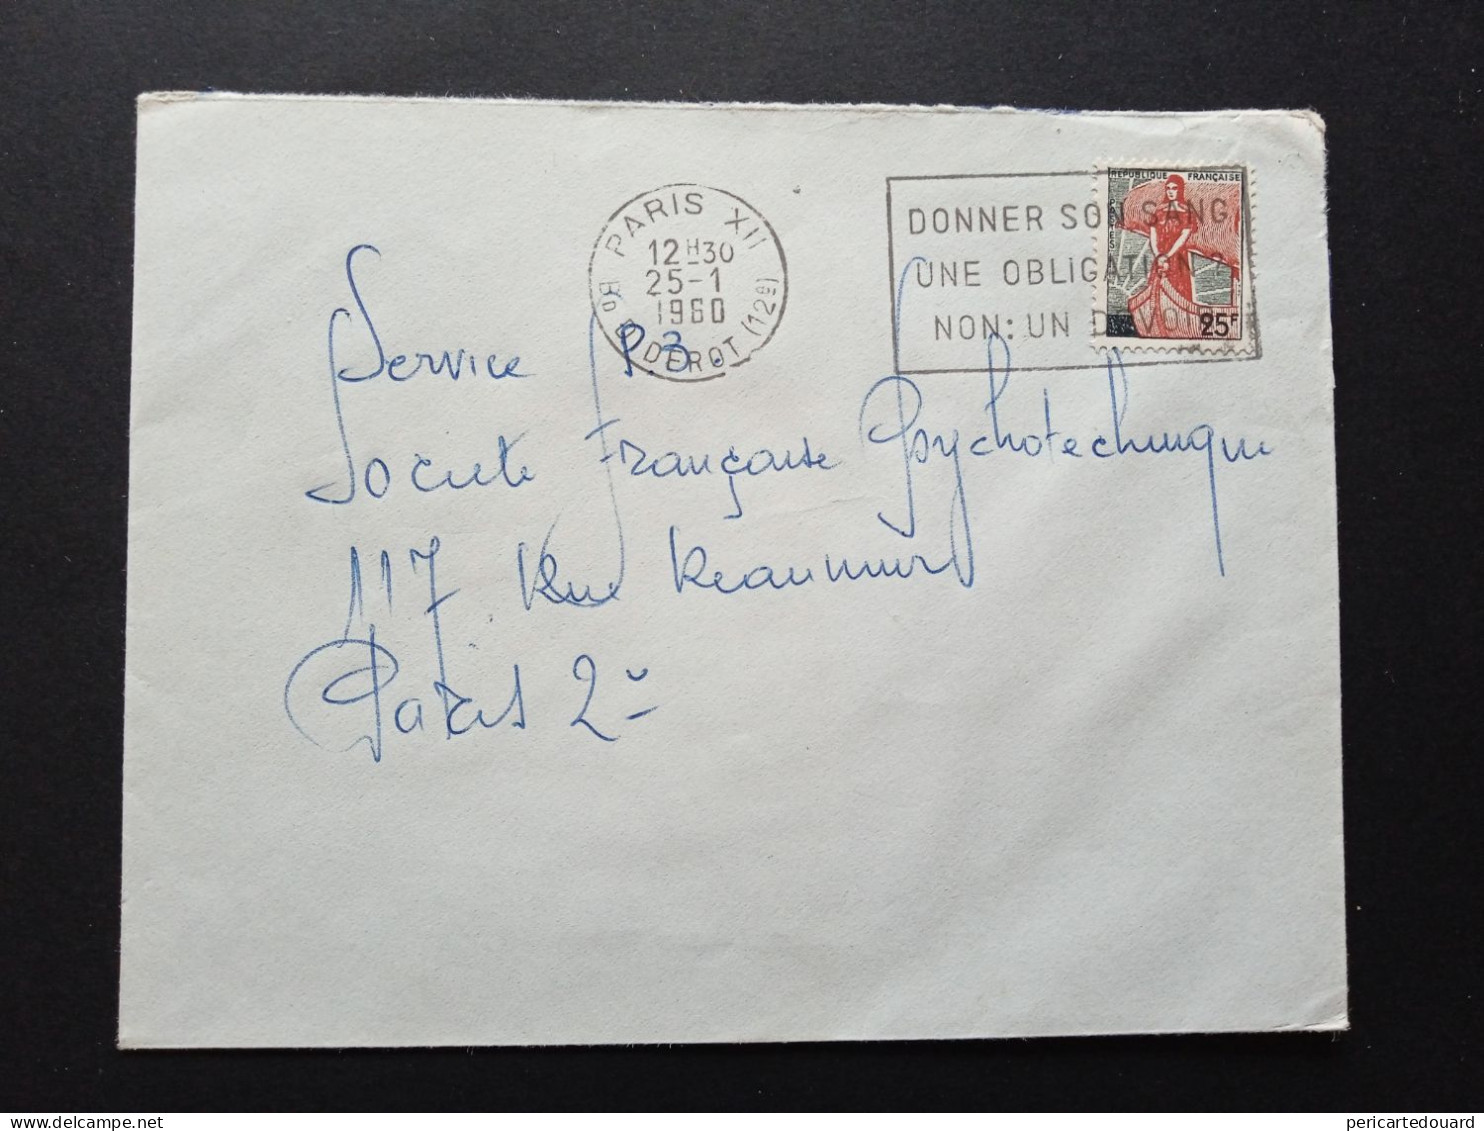 PARIS XII
12H30
25-1
1960
Bd DIDEROT (12e)
DONNER SON SANG
UNE OBLIGATION ?
NON: UN DEVOIR
REPUBLIQUE FRANÇAISE
POSTES
25F
Service P.3.
Societe Française Psychotechnique
117 Rue Reaumur
Paris 2e
delcampe.net
pericartedouard